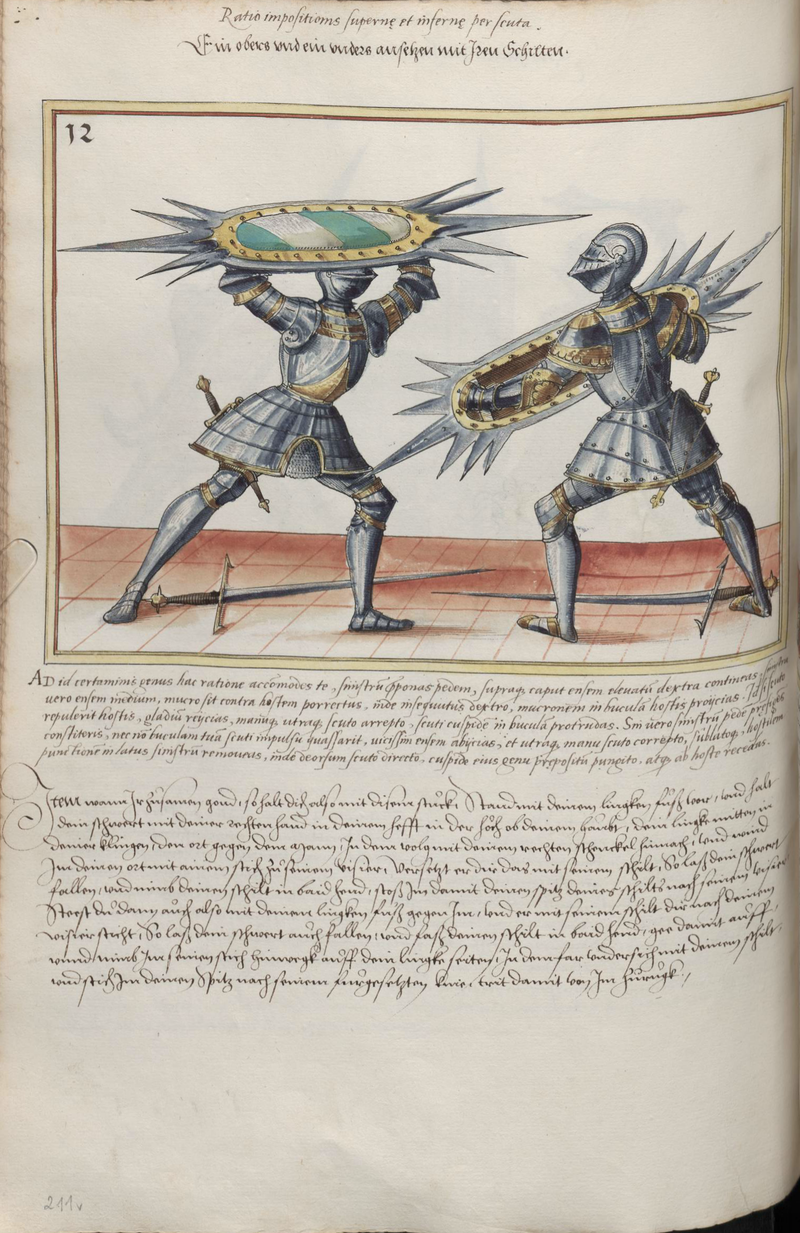 Ratio impositionis supernę et infernę per scuta.
Ein obers vnd ein vnders ansetzen mit Iren Schilten.
12
AD id certaminis genus hac ratione accõmodes te, sinistrũ p̱ponas pedem, supraq. caput ensem eleuatũ dextra contineas, sinistra
vero ensem medium, mucro sit contra hostem porrectus, inde insequutus dextro, mucronem in bucula hostis proijcias. Id si scuto
repulerit hostis, gladiũ reijcias, manuq. utraq. scuto arrepto, scuti cuspide in buculã protrudas. Sin uero sinistrũ pede prefixis
constiteris, nec nõ buculam tuã scuti impulsu quassarit, vicissim ensem abijcias, et utraq. manu scuto correpto, sublatoq, hostium
punctionẽ in latus sinistrũ remoueas, inde deorsum scuto directo, cuspide eius genu prępositũ pungito, atq. ab hoste recedas.
Item wann Ir zusamen gond, so halt dich also mit disem stuck, Stand mit deinem lingken fůß vor, vnd halt
dein schwert mit deiner rechten hand in deinem hefft in der höch ob deinem haubt, dein lingke mitten in
deiner klingen, den ort gegen dem Mann, In dem volg mit deinem rechten schenckel hinnach, vnd wind
Im deinen ort mit ainem stich zů seinem visier, Versetzt er dir das mit seinem schilt, So laß dein schwert
fallen, vnd nimb deinen schilt in baid hend, stoß Im damit deinen spitz deines schilts nach seinem visier
Steest du dann auch also mit deinem lingken fůß gegen Im, vnd er mit seinem schilt dir nach deinem
visier sticht, So laß dein schwert auch fallen, vnd faß deinen schilt in baid hend, gee damit auff,
vnnd nimb Im seinen stich hinwegk auff dein lingke seiten, In dem far vndersich mit deinem schilt,
vnd stich Im deinen Spitz nach seinem fürgesetzten knie, trit damit von Im zurugk.
211v